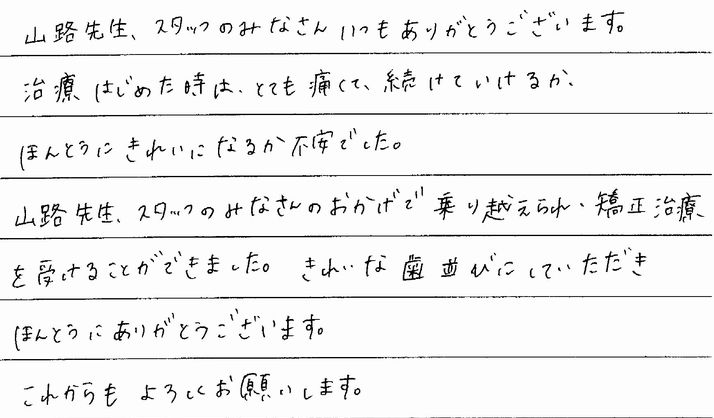 山路先生、スタッフのみなさん いつもありがとうございます。
治療 はじめた時は、とても痛くて、続けていけるか、
ほんとうに きれいに なるか 不安でした。
山路先生、スタッフのみなさんのおかげで 乗り越えられ、矯正治療
を受けることができました。 きれいな 歯並びにしていただき
ほんとうにありがとうございます。
これからも よろしくお願いします。